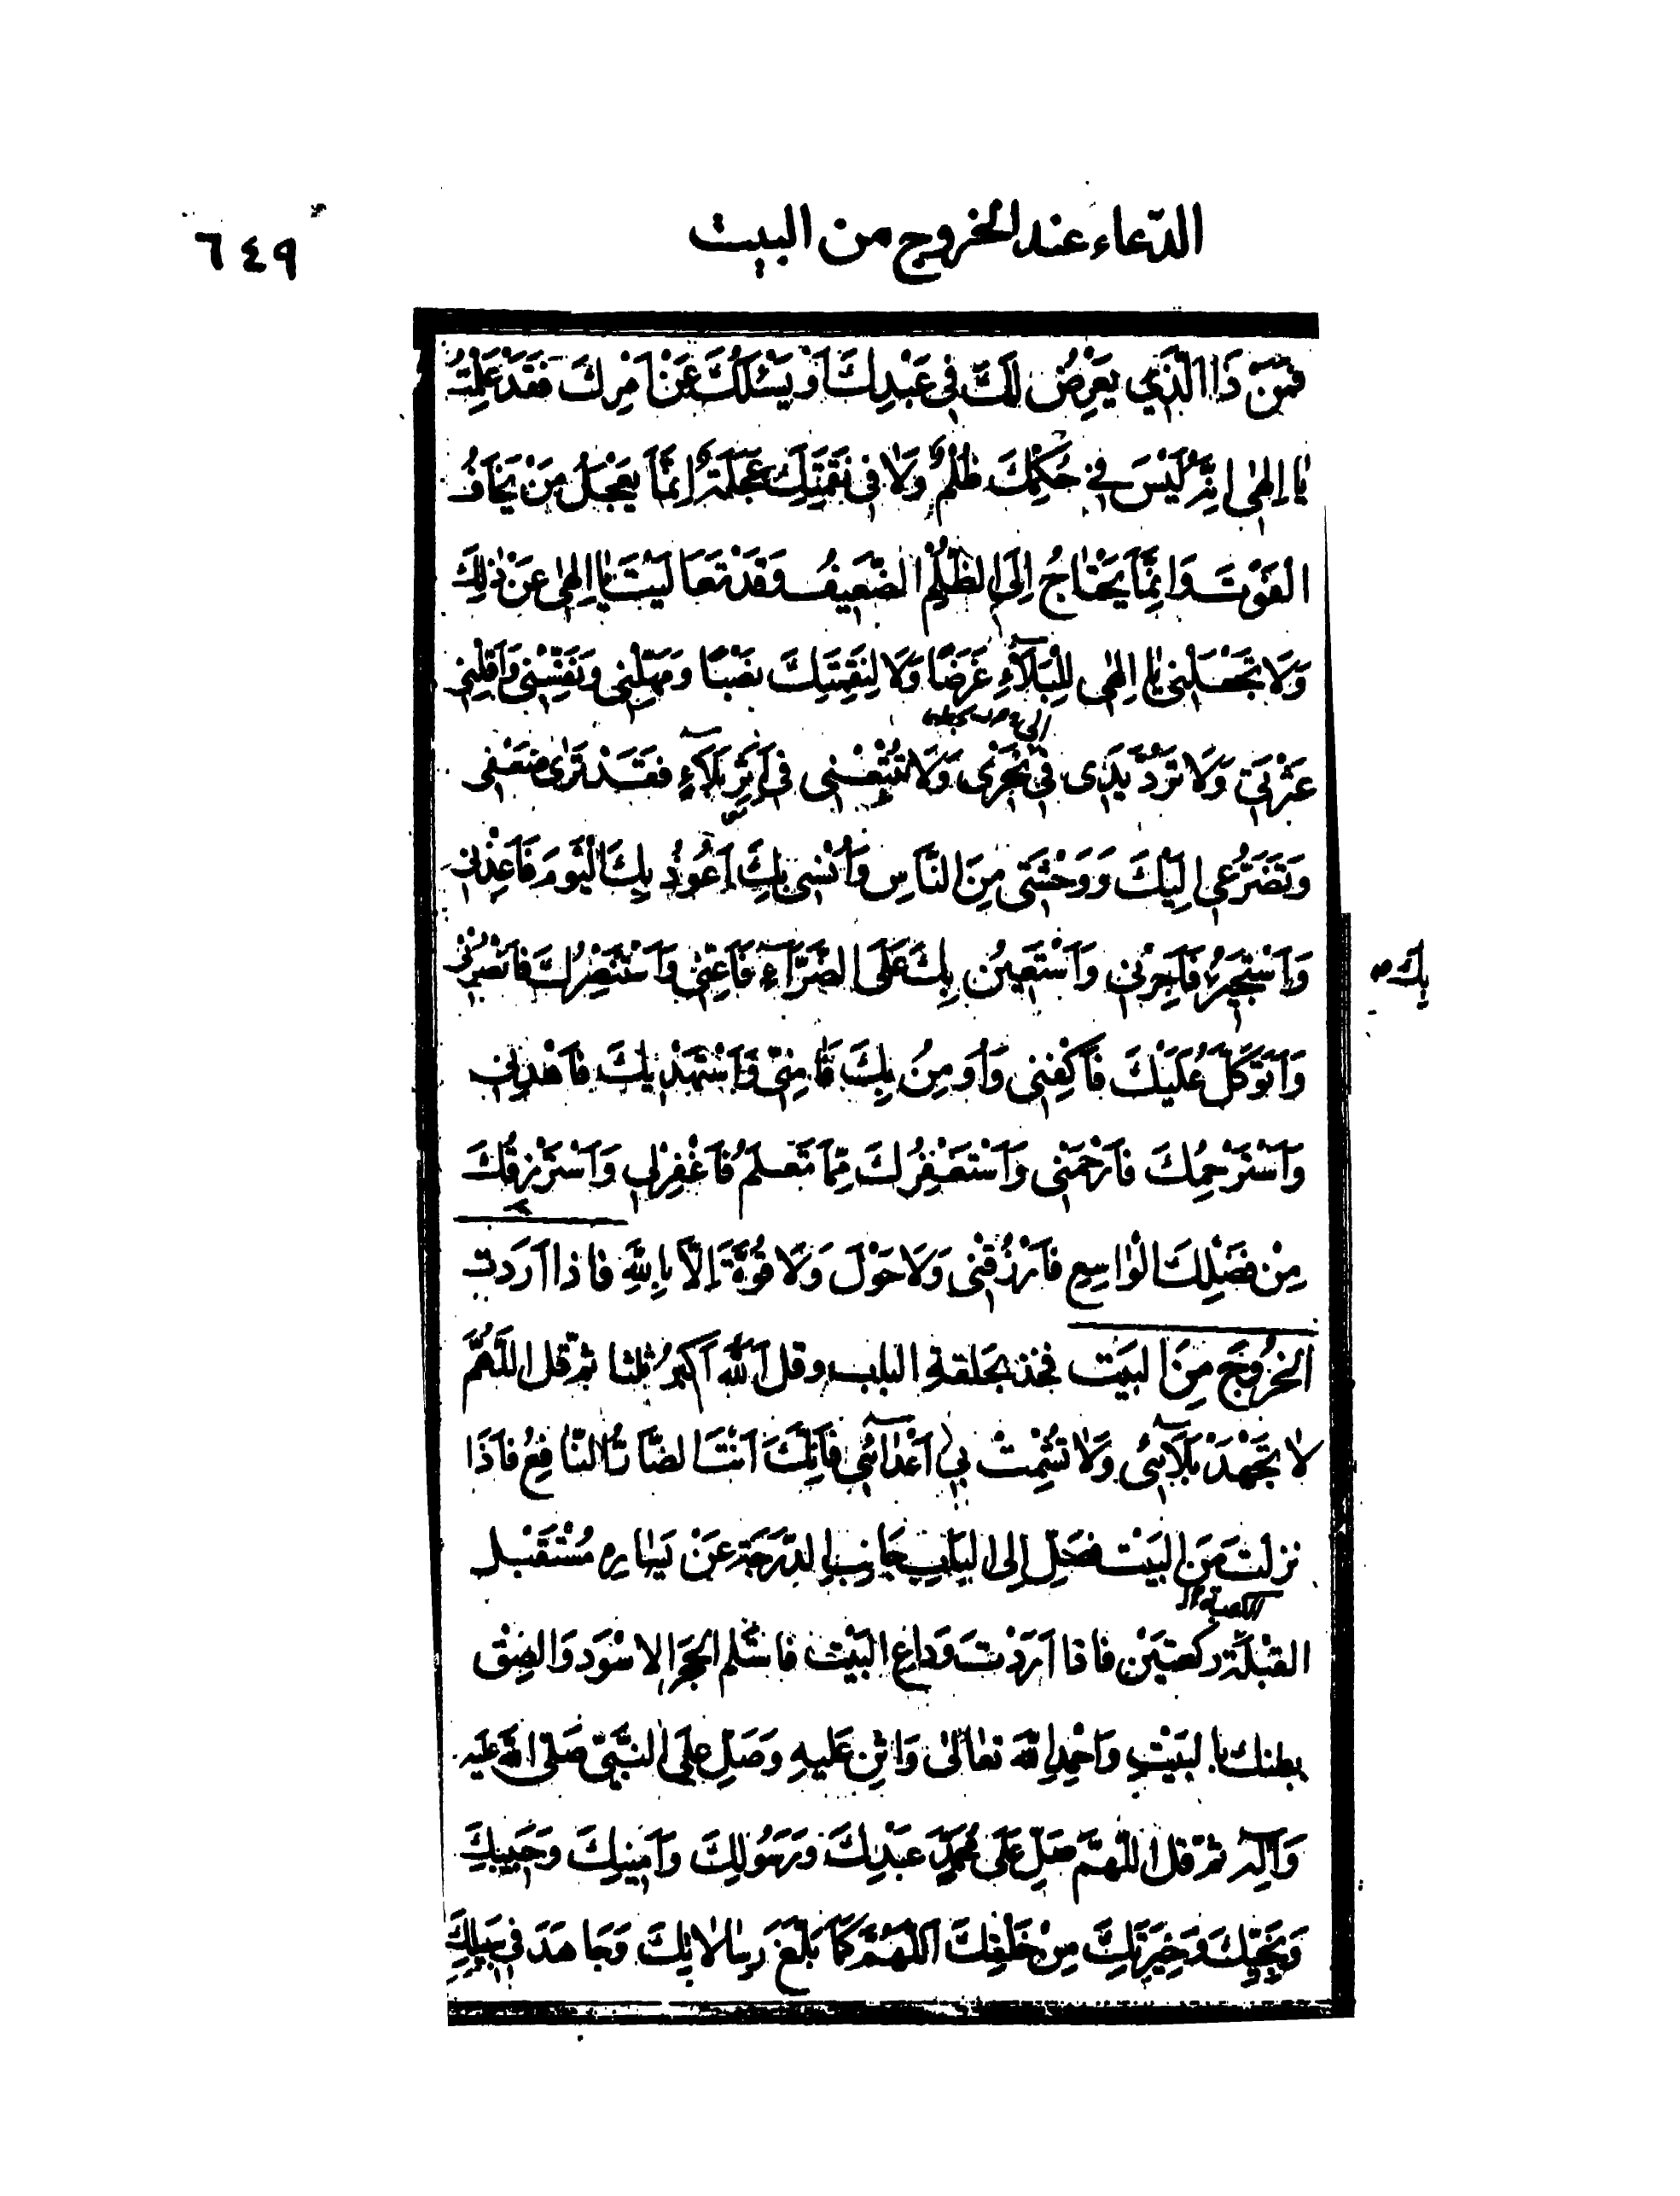 الدّعاء عند الخروج من البيت
٦٤٩
فَمَنْ ذَا الَّذِي يَعْرِضُ لَكَ فِي عَبْدِكَ أَوْ يَسْئَلُكَ عَنْ أَمْرِكَ فَقَدْ عَلِمْتُ
يٰا إِلٰهِى إِنَّهُ لَيْسَ فِي حُكْمِكَ ظُلْمٌ وَلٰا فِي نَقِمَتِكَ عَجَلَةٌ إِنَّمٰا يَعْجَلُ مَنْ يَخٰافُ
الْفَوْتَ وَإِنَّمٰا يَحْتٰاجُ إِلَى الظُّلْمِ الضَّعِيفُ وَقَدْ تَعٰالَيْتَ يٰا إِلٰهِى عَنْ ذٰلِكَ
وَلَا تَجْعَلْنِي يٰا إِلٰهِى لِلْبَلٰآءِ غَرَضًا وَلَا لِنَقِمَتِكَ نَصْبًا وَمَهِّلْنِي وَنَفِّسْنِي وَأَقِلْنِي
عَثْرَتِي وَلَا تَرُدَّ يَدِى فِي نَحْرِى وَلَا تُتْبِعْنِى فِي أَثَرِ بَلَآءٍ فَقَدْ تَرٰى ضَعْفِى
وَتَضَرُّعِي إِلَيْكَ وَوَحْشَتِى مِنَ النَّاسِ وَأُنْسِى بِكَ أَعُوذُ بِكَ الْيَوْمَ فَأَعِذْنِي
وَأَسْتَجِيرُ فَأَجِرْنِي وَأَسْتَعِينُ بِكَ عَلَى الضَّرَّآءِ فَأَعِنِّى وَأَسْتَنْصِرُكَ فَانْصُرْنِى
بِكَ
وَأَتَوَكَّلُ عَلَيْكَ فَاكْفِنِي وَأُومِنُ بِكَ فَآمِنِّى وَأَسْتَهْدِيكَ فَاهْدِنِي
وَأَسْتَرْحِمُكَ فَارْحَمْنِى وَأَسْتَغْفِرُكَ مِمَّا تَعْلَمُ فَاغْفِرْلِي وَأَسْتَرْزِقُكَ
مِنْ فَضْلِكَ الْوٰاسِعِ فَارْزُقْنِى وَلَا حَوْلَ وَلَا قُوَّةَ إِلَّا بِاللّٰهِ فاذا أردت
الخُرُوجَ مِنَ البَيْت فخذ بحلقة الباب وقل اَللّٰهُ أَكْبَرُ ثلثا ثم قل اللَّهُمَّ
لٰا تَجْهَدْ بَلَآئِى وَلٰا تُشْمِتْ بِي أَعْدٰآئِي فَإِنَّكَ أَنْتَ الضَّارُّ النَّافِعُ فَاذَا
نزلت مِنَ البَيْت فصَلِّ إلى البٰابِ جٰانِبَ الدَّرَجَةِ عَنْ يَسٰارِهِ مُسْتَقْبِلَ
الكعبة
القِبْلَةِ ركعتَيْن فاذا أَرَدْتَ وَداعِ البَيْت فاستلم الحَجَر الاسْوَد وَالصِقْ
بطنك بالبَيْتِ وَاحْمِدِ اللّٰهَ تعٰالىٰ وَاثْنِ عَلَيهِ وَصَلِّ عَلَى النَّبِّى صَلَّى اللّٰهُ عَلَيْهِ
وَآلِهِ ثمّ قل اللّٰهُمَّ صَلِّ عَلَى مُحَمَّدٍ عَبْدِكَ وَرَسُولِكَ وَأَمِينِكَ وَحَبِيبِكَ
وَنَجِيِّكَ وَخِيَرَتِكَ مِنْ خَلْقِكَ اَللّٰهُمَّ كَمَا بَلَّغَ رِسٰالٰاتِكَ وَجَاهَدَ فِي سَبِيلِكَ